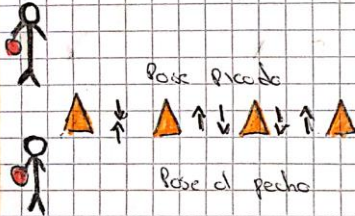 Pase picado
Pase al pecho